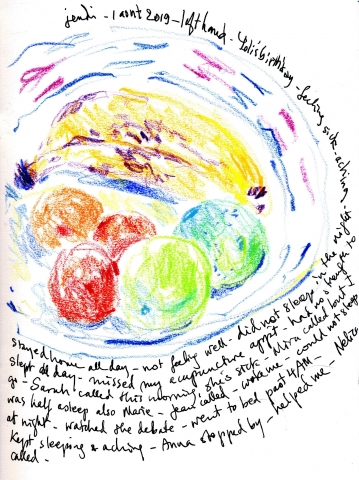 jeudi - 1 août 2019 - left hand - Yoli's birthday - feeling sick - aching
stayed home all day - not feeling well - did not sleep in the night
slept all day - missed my acupuncture appt - had no hunger to
go - Sarah called this morning - she's sick - Mira called but I
was half asleep also Marie - Jean called - woke me - could not sleep
at night - watched the debate - went to bed past 4 AM -
Kept sleeping & aching - Anna stopped by - helped me - Nelson
called -